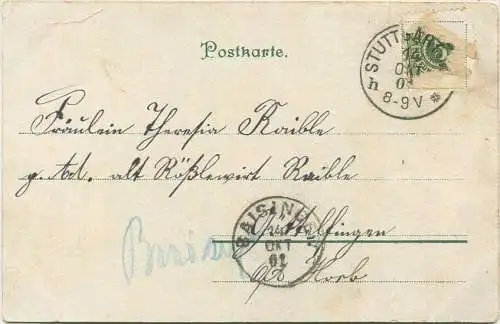 Postkarte.
STUTTGART
14
OKT
01
h 8-9V *
Fräulein Theresia Raible
p. Ad. alt Rößlewirt Raible
BAISINGEN
14
OKT
01
Göttelfingen
Baisin
o/a Horb